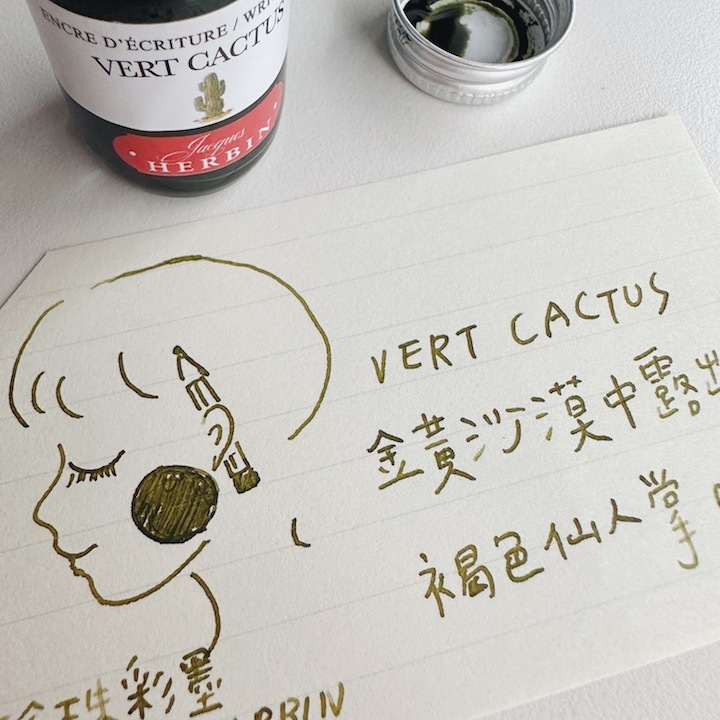 ENCRE D'ÉCRITURE / WRI
VERT CACTUS
Jacques
HERBIN
VERT CACTUS
金黃沙漠中露出
褐色仙人掌
珠彩墨
RBIN